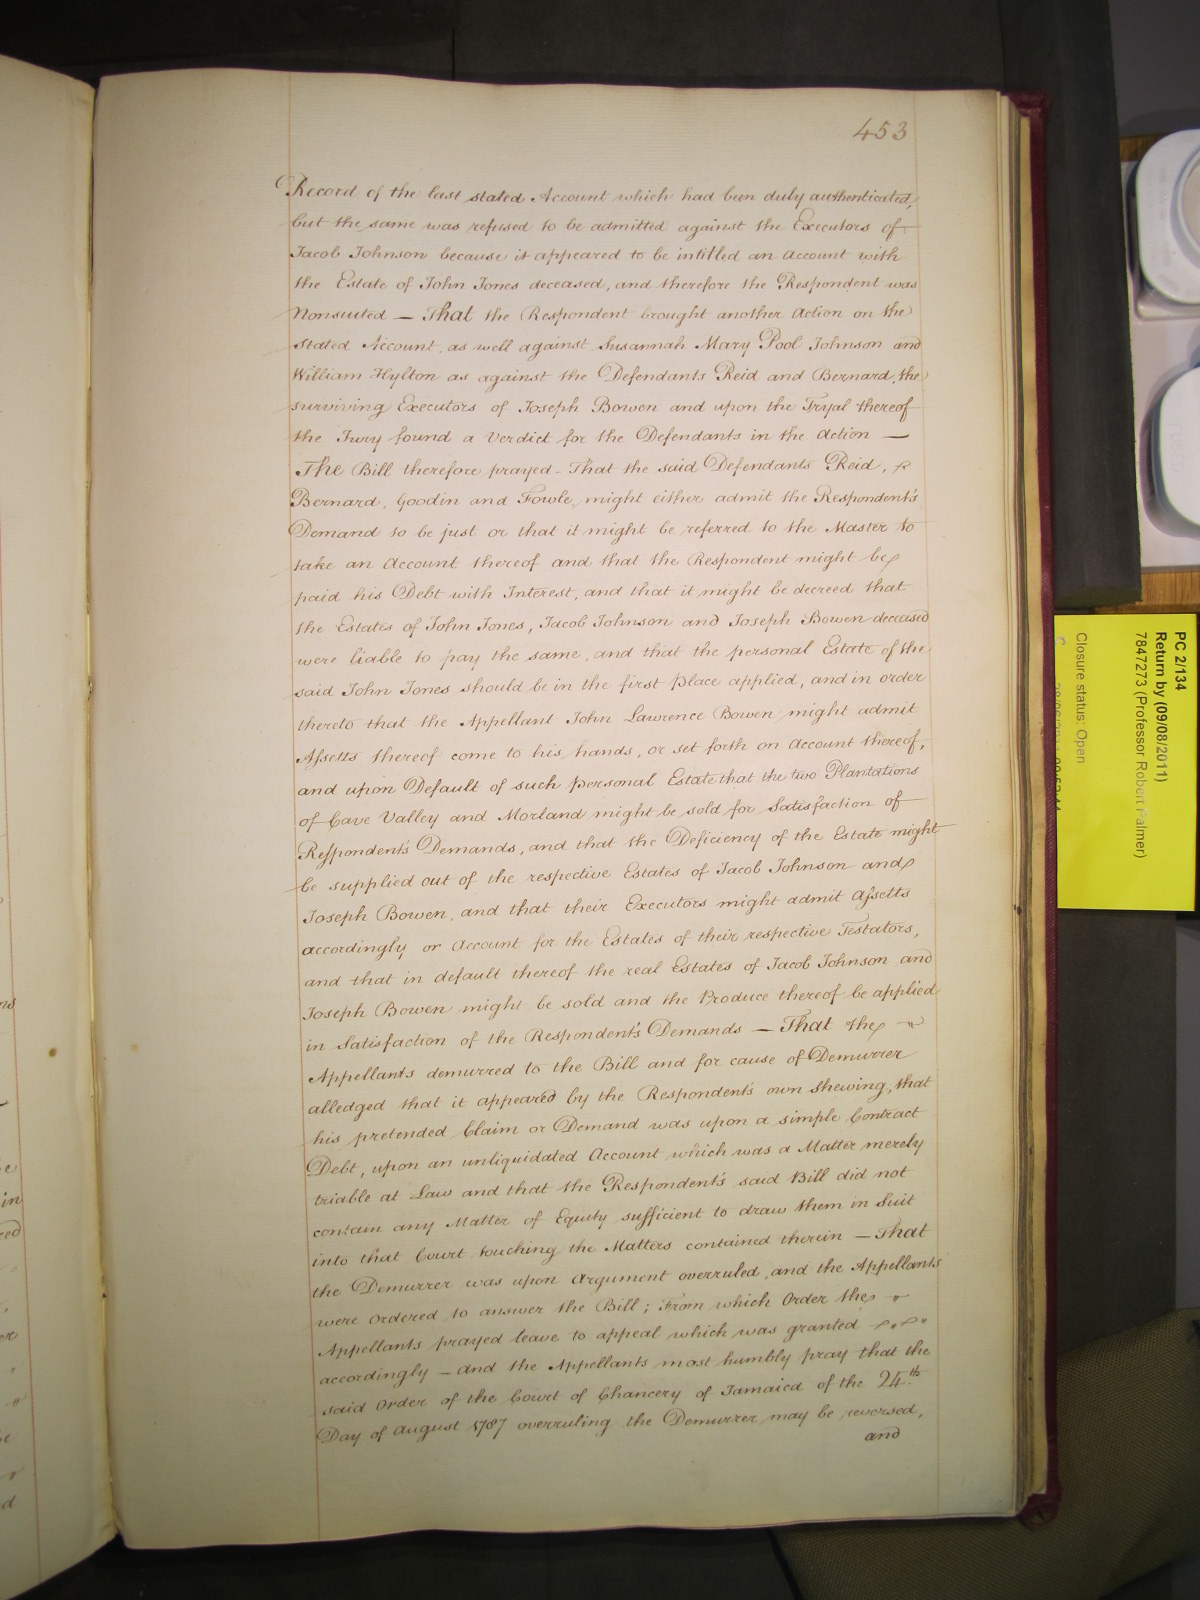 453
Record of the last stated Account which had been duly authenticated,
but the same was refused to be admitted against the Executors of
Jacob Johnson because it appeared to be intitled an Account with
the Estate of John Jones deceased, and therefore the Respondent was
Nonsuited — That the Respondent brought another Action on the
stated Account, as well against Susannah Mary Pool Johnson and
William Hylton as against the Defendants Reid and Bernard, the
surviving Executors of Joseph Bowen and upon the Tryal thereof
the Jury found a Verdict for the Defendants in the Action —
The Bill therefore prayed - That the said Defendants Reid,
Bernard, Goodin and Fowle, might either admit the Respondent's
Demand to be just or that it might be referred to the Master to
take an Account thereof and that the Respondent might be
paid his Debt with Interest, and that it might be decreed that
the Estates of John Jones, Jacob Johnson and Joseph Bowen deceased
were liable to pay the same, and that the personal Estate of the
said John Jones should be in the first Place applied, and in order
thereto that the Appellant John Lawrence Bowen might admit
Assetts thereof come to his hands, or set forth an Account thereof,
and upon Default of such personal Estate that the two Plantations
of Cave Valley and Morland might be sold for Satisfaction of
Respondent's Demands, and that the Deficiency of the Estate might
be supplied out of the respective Estates of Jacob Johnson and
Joseph Bowen, and that their Executors might admit Assetts
accordingly or Account for the Estates of their respective Testators,
and that in default thereof the real Estates of Jacob Johnson and
Joseph Bowen might be sold and the Produce thereof be applied
in Satisfaction of the Respondent's Demands — That the
Appellants demurred to the Bill and for cause of Demurrer
alledged that it appeared by the Respondent's own shewing, that
his pretended Claim or Demand was upon a simple Contract
Debt, upon an unliquidated Account which was a Matter merely
triable at Law and that the Respondent's said Bill did not
contain any Matter of Equity sufficient to draw them in Suit
into that Court touching the Matters contained therein — That
the Demurrer was upon Argument overruled, and the Appellants
were Ordered to answer the Bill; From which Order the
Appellants prayed leave to appeal which was granted
accordingly — and the Appellants most humbly pray that the
said Order of the Court of Chancery of Jamaica of the 24th
Day of August 1787 overruling the Demurrer may be reversed,
and
PC 2/134
Return by (09/08/2011)
7847273 (Professor Robert Palmer)
Closure status: Open